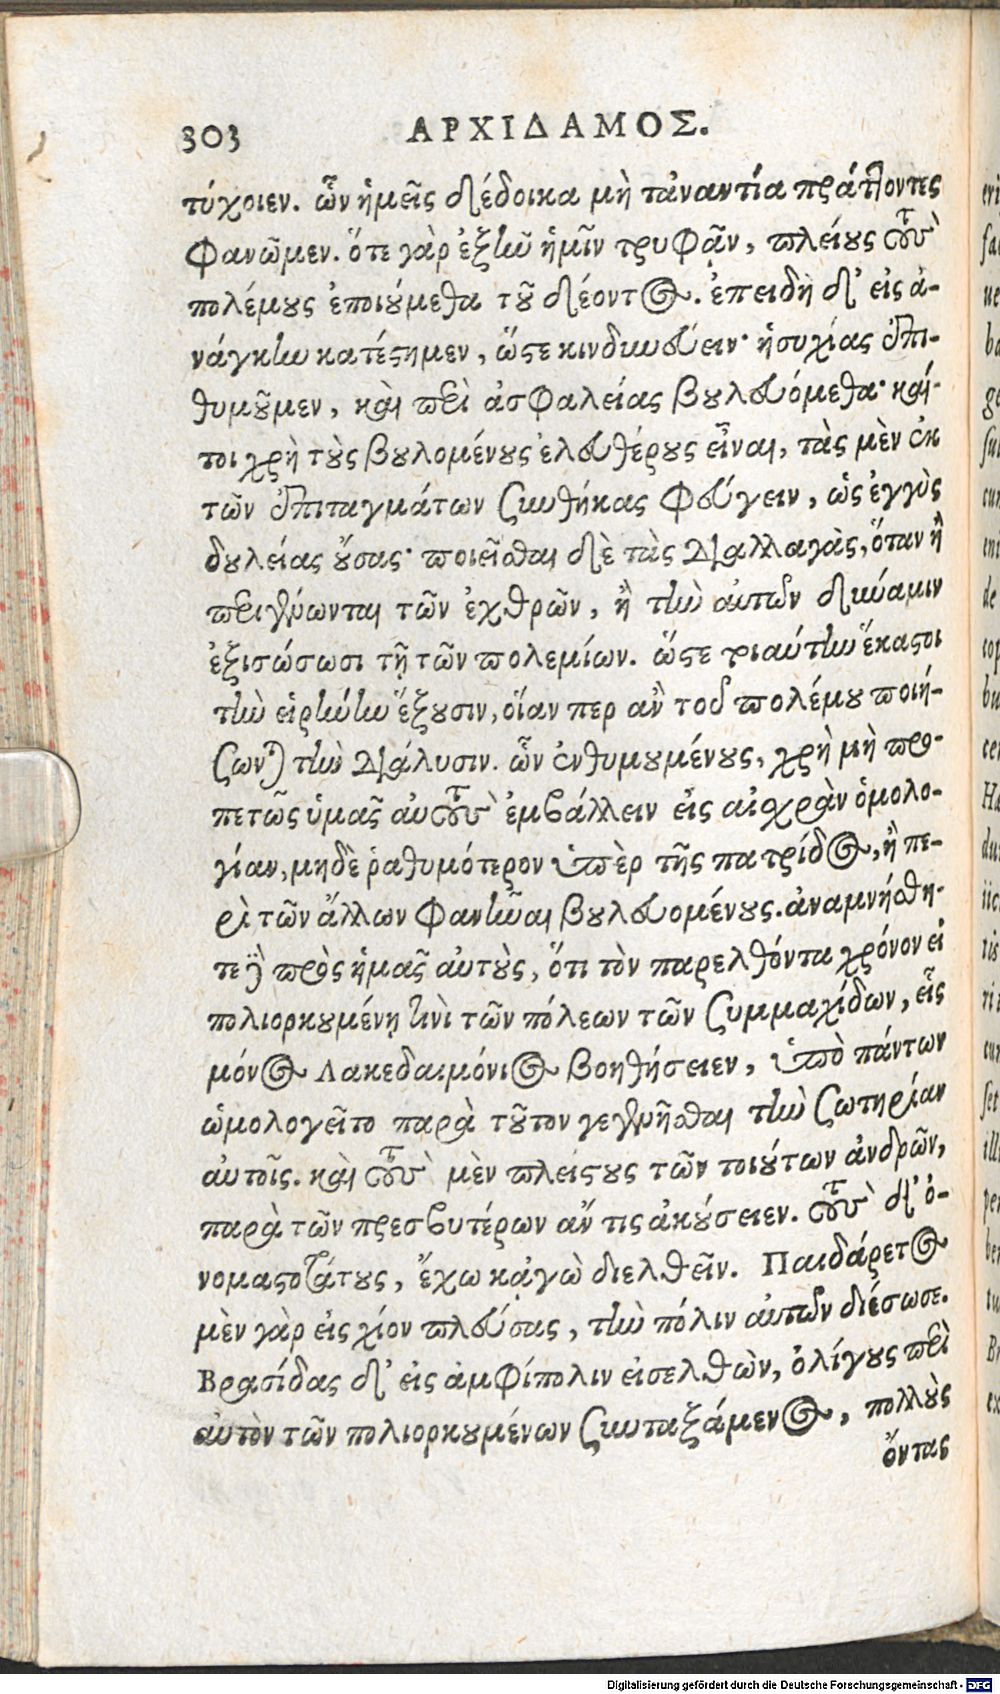 303 ΑΡΧΙΔΑΜΟΣ.
τύχοιεν. ὧν ἡμεῖς δέδοικα μὴ τἀναντία πράττοντες
φανῶμεν. ὅτε γὰρ ἐξῆν ἡμῖν τρυφᾷν, πλείους τοὺς
πολέμους ἐποιούμεθα τοῦ δέοντος. ἐπειδὴ δ' εἰς ἀ-
νάγκην κατέστημεν, ὥστε κινδυνεύειν· ἡσυχίας ἐπι-
θυμοῦμεν, καὶ περὶ ἀσφαλείας βουλευόμεθα· καί-
τοι χρὴ τοὺς βουλομένους ἐλευθέρους εἶναι, τὰς μὲν ἐκ
τῶν ἐπιταγμάτων συνθήκας φεύγειν, ὡς ἐγγὺς
δουλείας οὔσας· ποιεῖσθαι δὲ τὰς διαλλαγὰς, ὅταν ἢ
περιγένωνται τῶν ἐχθρῶν, ἢ τὴν αὑτῶν δύναμιν
ἐξισώσωσι τῇ τῶν πολεμίων. ὥστε τοιαύτην ἕκαστοι
τὴν εἰρήνην ἕξουσιν, οἵαν περ ἂν τοῦ πολέμου ποιή-
σωνται τὴν διάλυσιν. ὧν ἐνθυμουμένους, χρὴ μὴ προ-
πετῶς ὑμᾶς αὐτοὺς ἐμβάλλειν εἰς αἰσχρὰν ὁμολο-
γίαν, μηδὲ ῥαθυμότερον ὑπὲρ τῆς πατρίδος, ἢ πε-
ρὶ τῶν ἄλλων φανῆναι βουλευομένους. ἀναμνήσθη-
τε δὲ πρὸς ἡμᾶς αὐτοὺς, ὅτι τὸν παρελθόντα χρόνον εἰ
πολιορκουμένῃ τινὶ τῶν πόλεων τῶν συμμαχίδων, εἷς
μόνος Λακεδαιμόνιος βοηθήσειεν, ὑπὸ πάντων
ὡμολογεῖτο παρὰ τοῦτον γεγενῆσθαι τὴν σωτηρίαν
αὐτοῖς. καὶ τοὺς μὲν πλείστους τῶν τοιούτων ἀνδρῶν,
παρὰ τῶν πρεσβυτέρων ἄν τις ἀκούσειεν. τοὺς δ' ὀ-
νομαστοτάτους, ἔχω κᾀγὼ διελθεῖν. Παιδάρετος
μὲν γὰρ εἰς χίον πλεύσας, τὴν πόλιν αὐτῶν διέσωσε.
Βρασίδας δ' εἰς ἀμφίπολιν εἰσελθὼν, ὀλίγους περὶ
αὑτὸν τῶν πολιορκουμένων συνταξάμενος, πολλοὺς
ὄντας
Digitalisierung gefördert durch die Deutsche Forschungsgemeinschaft - DFG